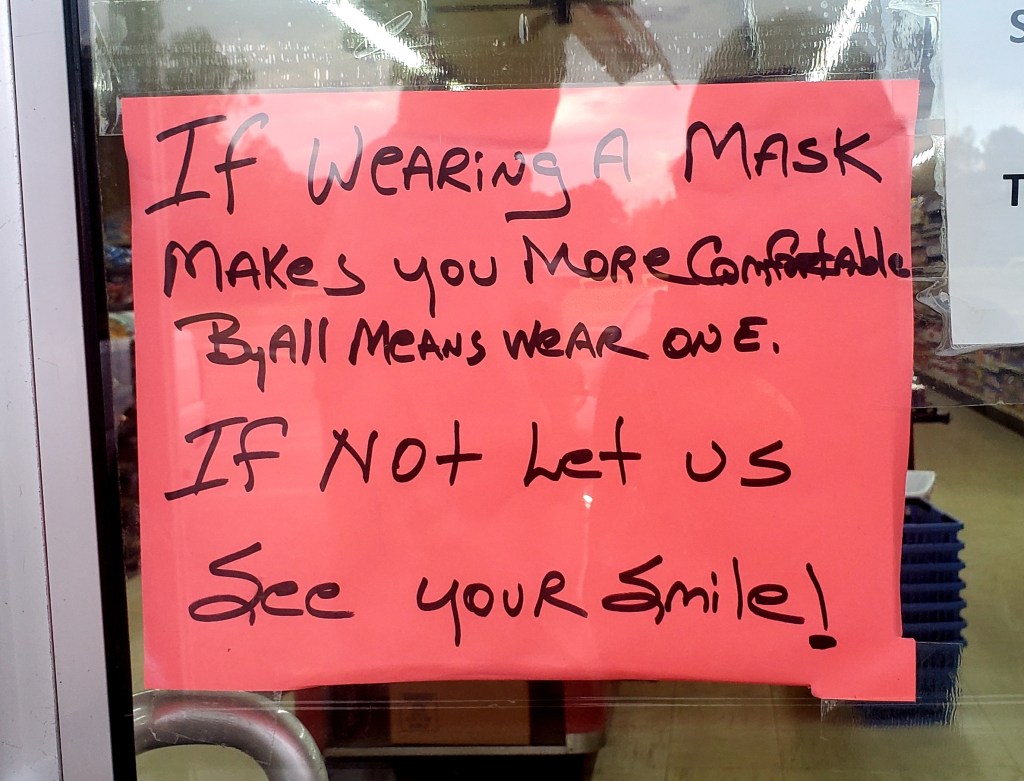 If Wearing A Mask
Makes you More Comfortable
By All Means Wear One.
If Not Let us
See your Smile!
S
T